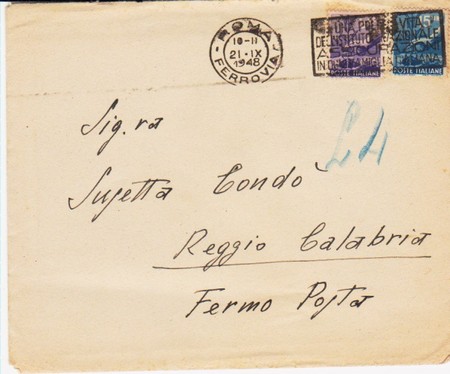 ROMA
10-11
21·IX
1948
FERROVIA
UNA
VITA
IN OGNI
ITALIANA
POSTE ITALIANE
POSTE ITALIANE
Sig.ra
L4
Sujetta Condò
Reggio Calabria
Fermo Posta